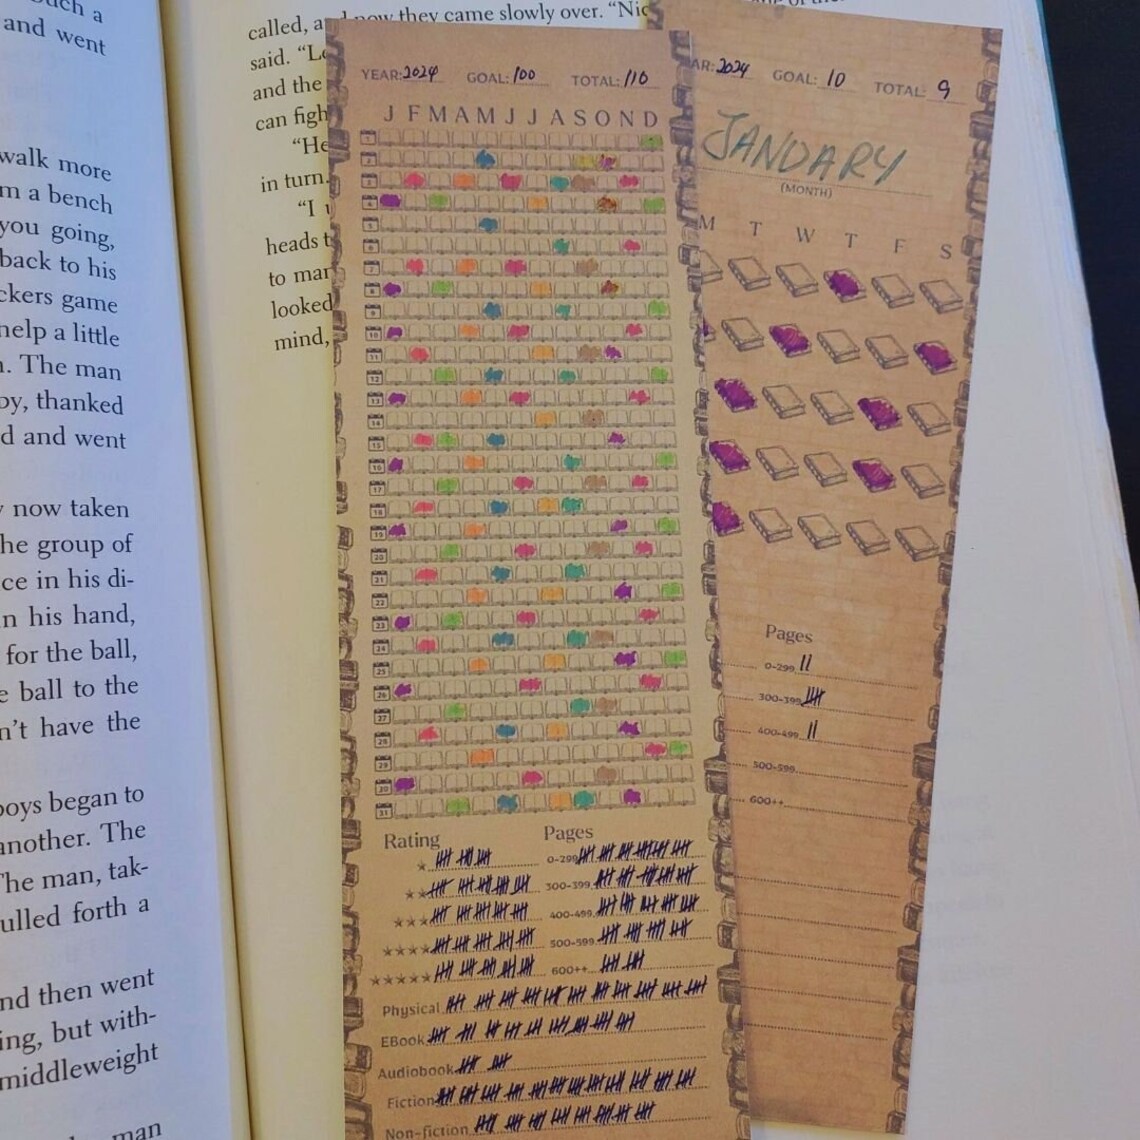 and went
walk more
m a bench
you going,
back to his
ckers game
help a little
The man
oy, thanked
d and went
now taken
he group of
ce in his di-
n his hand,
for the ball,
e ball to the
n't have the
boys began to
another. The
The man, tak-
ulled forth a
nd then went
ing, but with-
middleweight
man
called, a
now they came slowly over. "Nic
said. "Le
and the
can figh
"He
in turn.
"I
heads t
to mar
looked
mind,
YEAR: 2024 GOAL: 100 TOTAL: 110
J F M A M J J A S O N D
1
2
3
4
5
6
7
8
9
10
11
12
13
14
15
16
17
18
19
20
21
22
23
24
25
26
27
28
29
30
31
Rating Pages
0-299
300-399
400-499
500-599
600++
Physical
EBook
Audiobook
Fiction
Non-fiction
AR: 2024 GOAL: 10 TOTAL: 9
JANUARY
(MONTH)
M T W T F S
Pages
0-299
300-399
400-499
500-599
600++